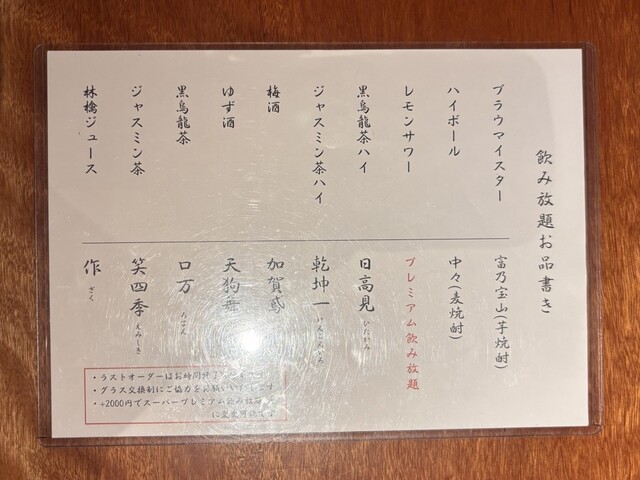 飲み放題お品書き
ブラウマイスター
ハイボール
レモンサワー
黒烏龍茶ハイ
ジャスミン茶ハイ
梅酒
ゆず酒
黒烏龍茶
ジャスミン茶
林檎ジュース
富乃宝山(芋焼酎)
中々(麦焼酎)
プレミアム飲み放題
日高見 ひたかみ
乾坤一 けんこんいち
加賀鳶
天狗舞
口万 ろまん
笑四季 えみしき
作 ざく
・ラストオーダーはお時間
・グラス交換制にご協力をお願いいたします
・+2000円でスーパープレミアム飲み放題
に変更可能です